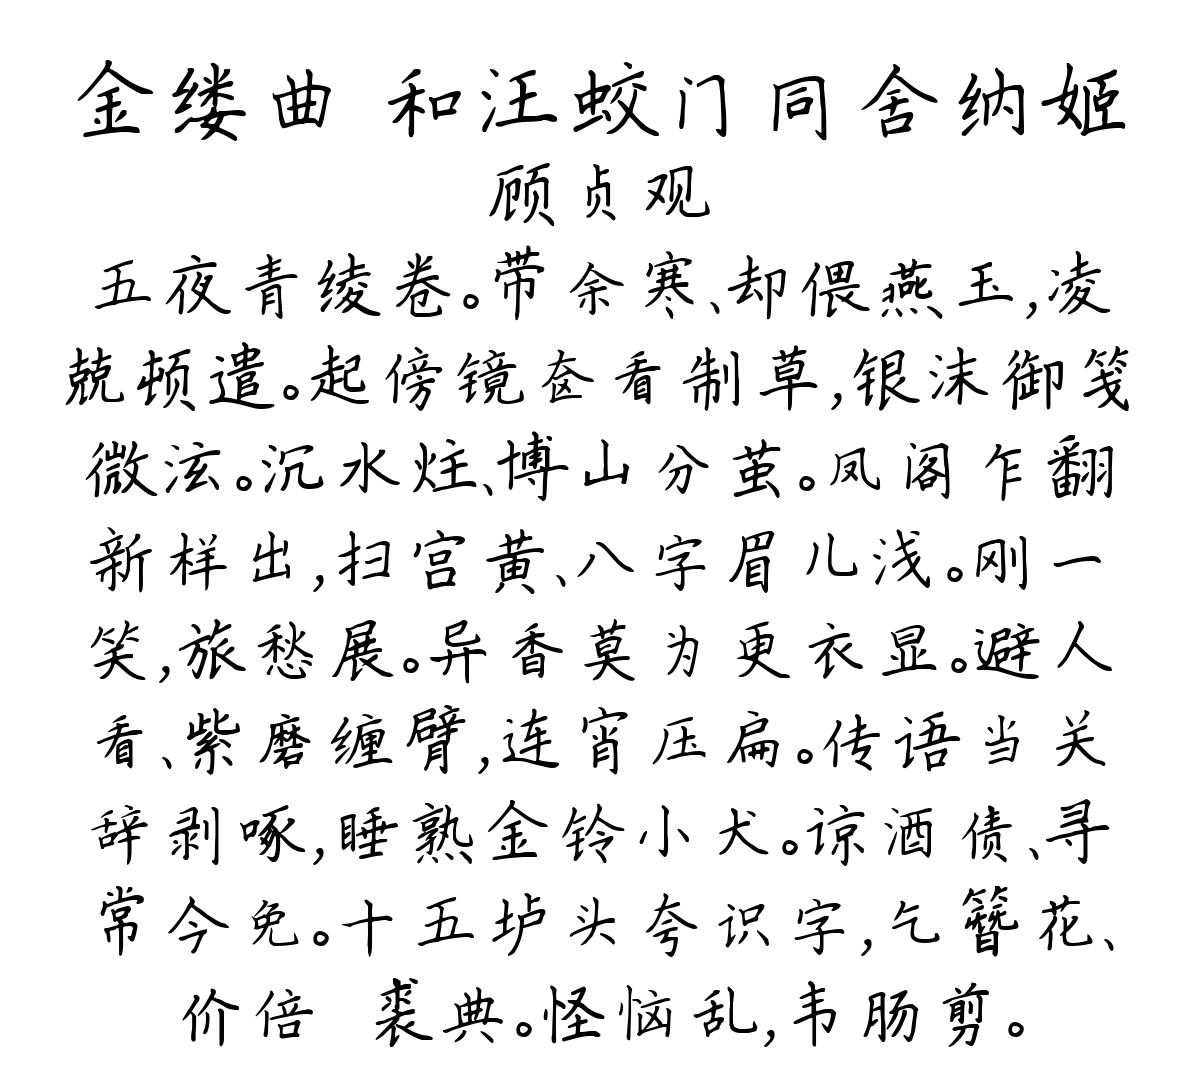 金缕曲 和汪蛟门同舍纳姬
顾贞观
五夜青绫卷。带余寒、却偎燕玉,凌
兢顿遣。起傍镜奁看制草,银沫御笺
微泫。沉水炷、博山分茧。凤阁乍翻
新样出,扫宫黄、八字眉儿浅。刚一
笑,旅愁展。异香莫为更衣显。避人
看、紫磨缠臂,连宵压扁。传语当关
辞剥啄,睡熟金铃小犬。谅酒债、寻
常今免。十五垆头夸识字,乞簪花、
价倍 裘典。怪恼乱,韦肠剪。